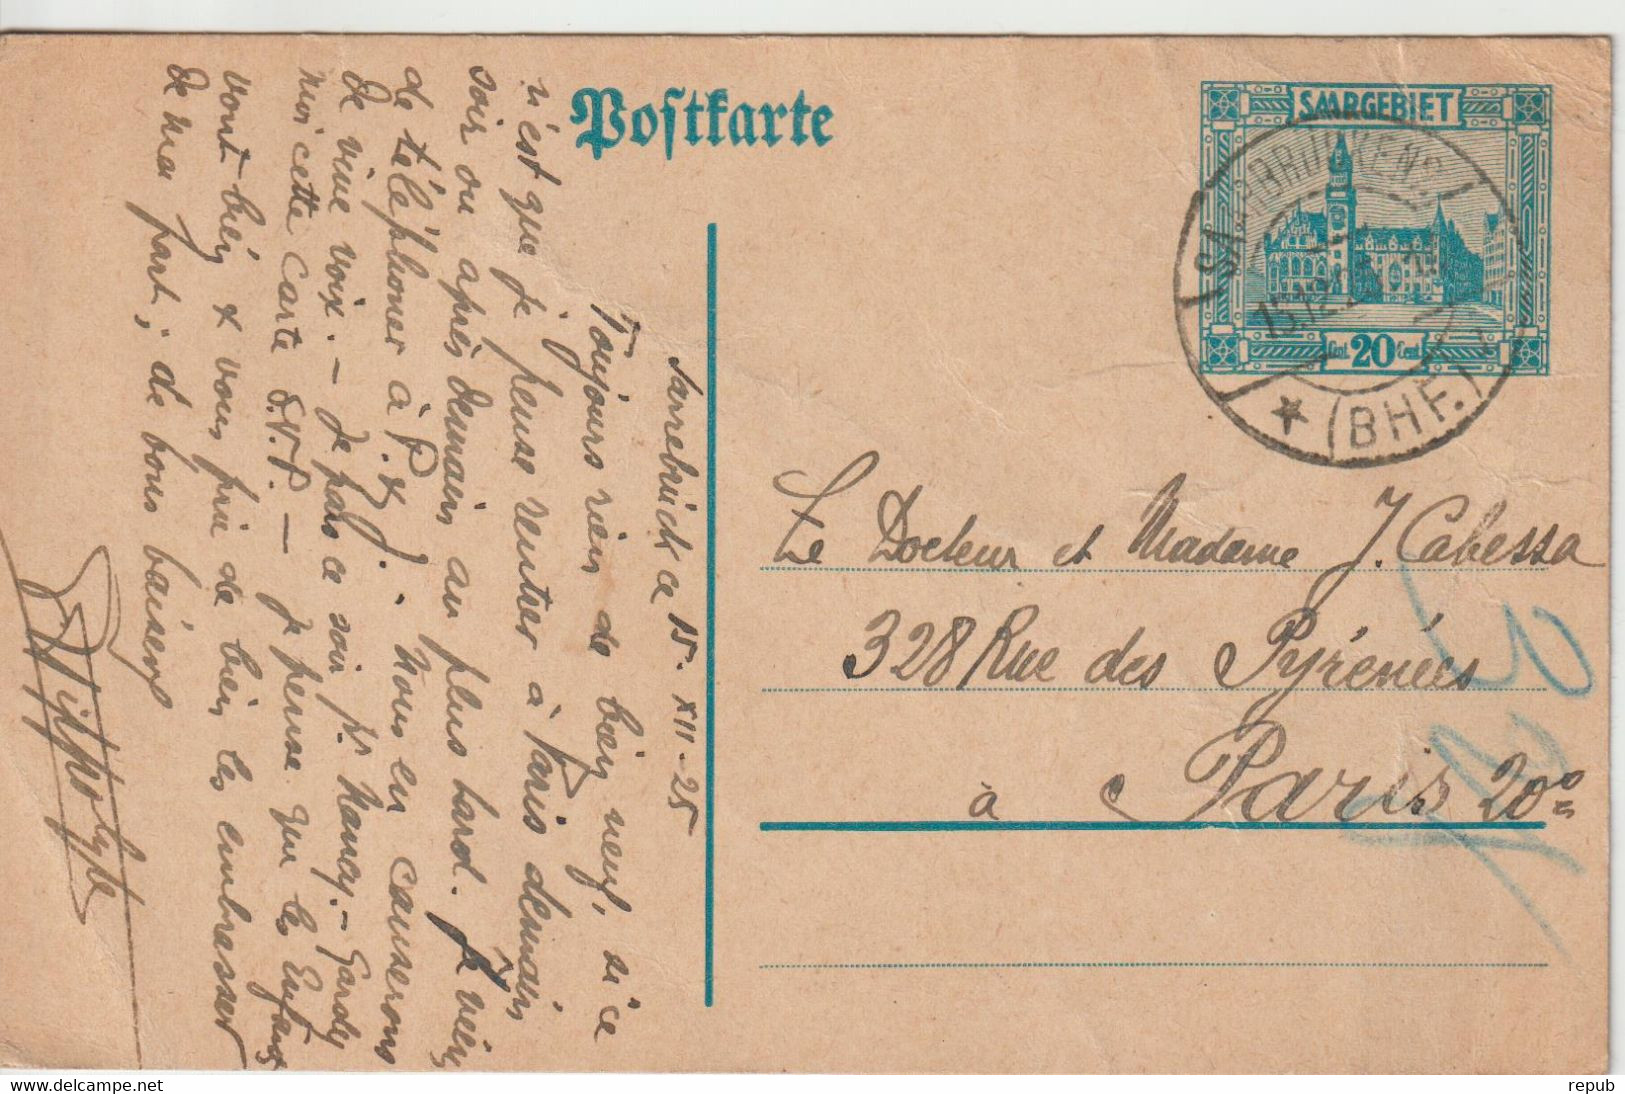 Postkarte
SAARGEBIET
Cent. 20 Cent.
SAARBRÜCKEN 2
15.12.25
★ (BHF.)
Sarrebrück ce 15-XII-25
Toujours rien de bien neuf, si ce
n'est que je pense rentrer à Paris demain
soir ou après demain au plus tard. Je vien
de téléphoner à P. & J. Nous en causerons
de vive voix. - Je pars ce soir pr. Nancy. - Gardez
moi cette carte S.V.P. - je pense que les Enfants
vont bien & vous prie de bien les embrasser
de ma part, de bons baisers
Hippolyte
Le Docteur et Madame J. Cabessa
328 Rue des Pyrénées
à Paris 20e
www.delcampe.net
repub